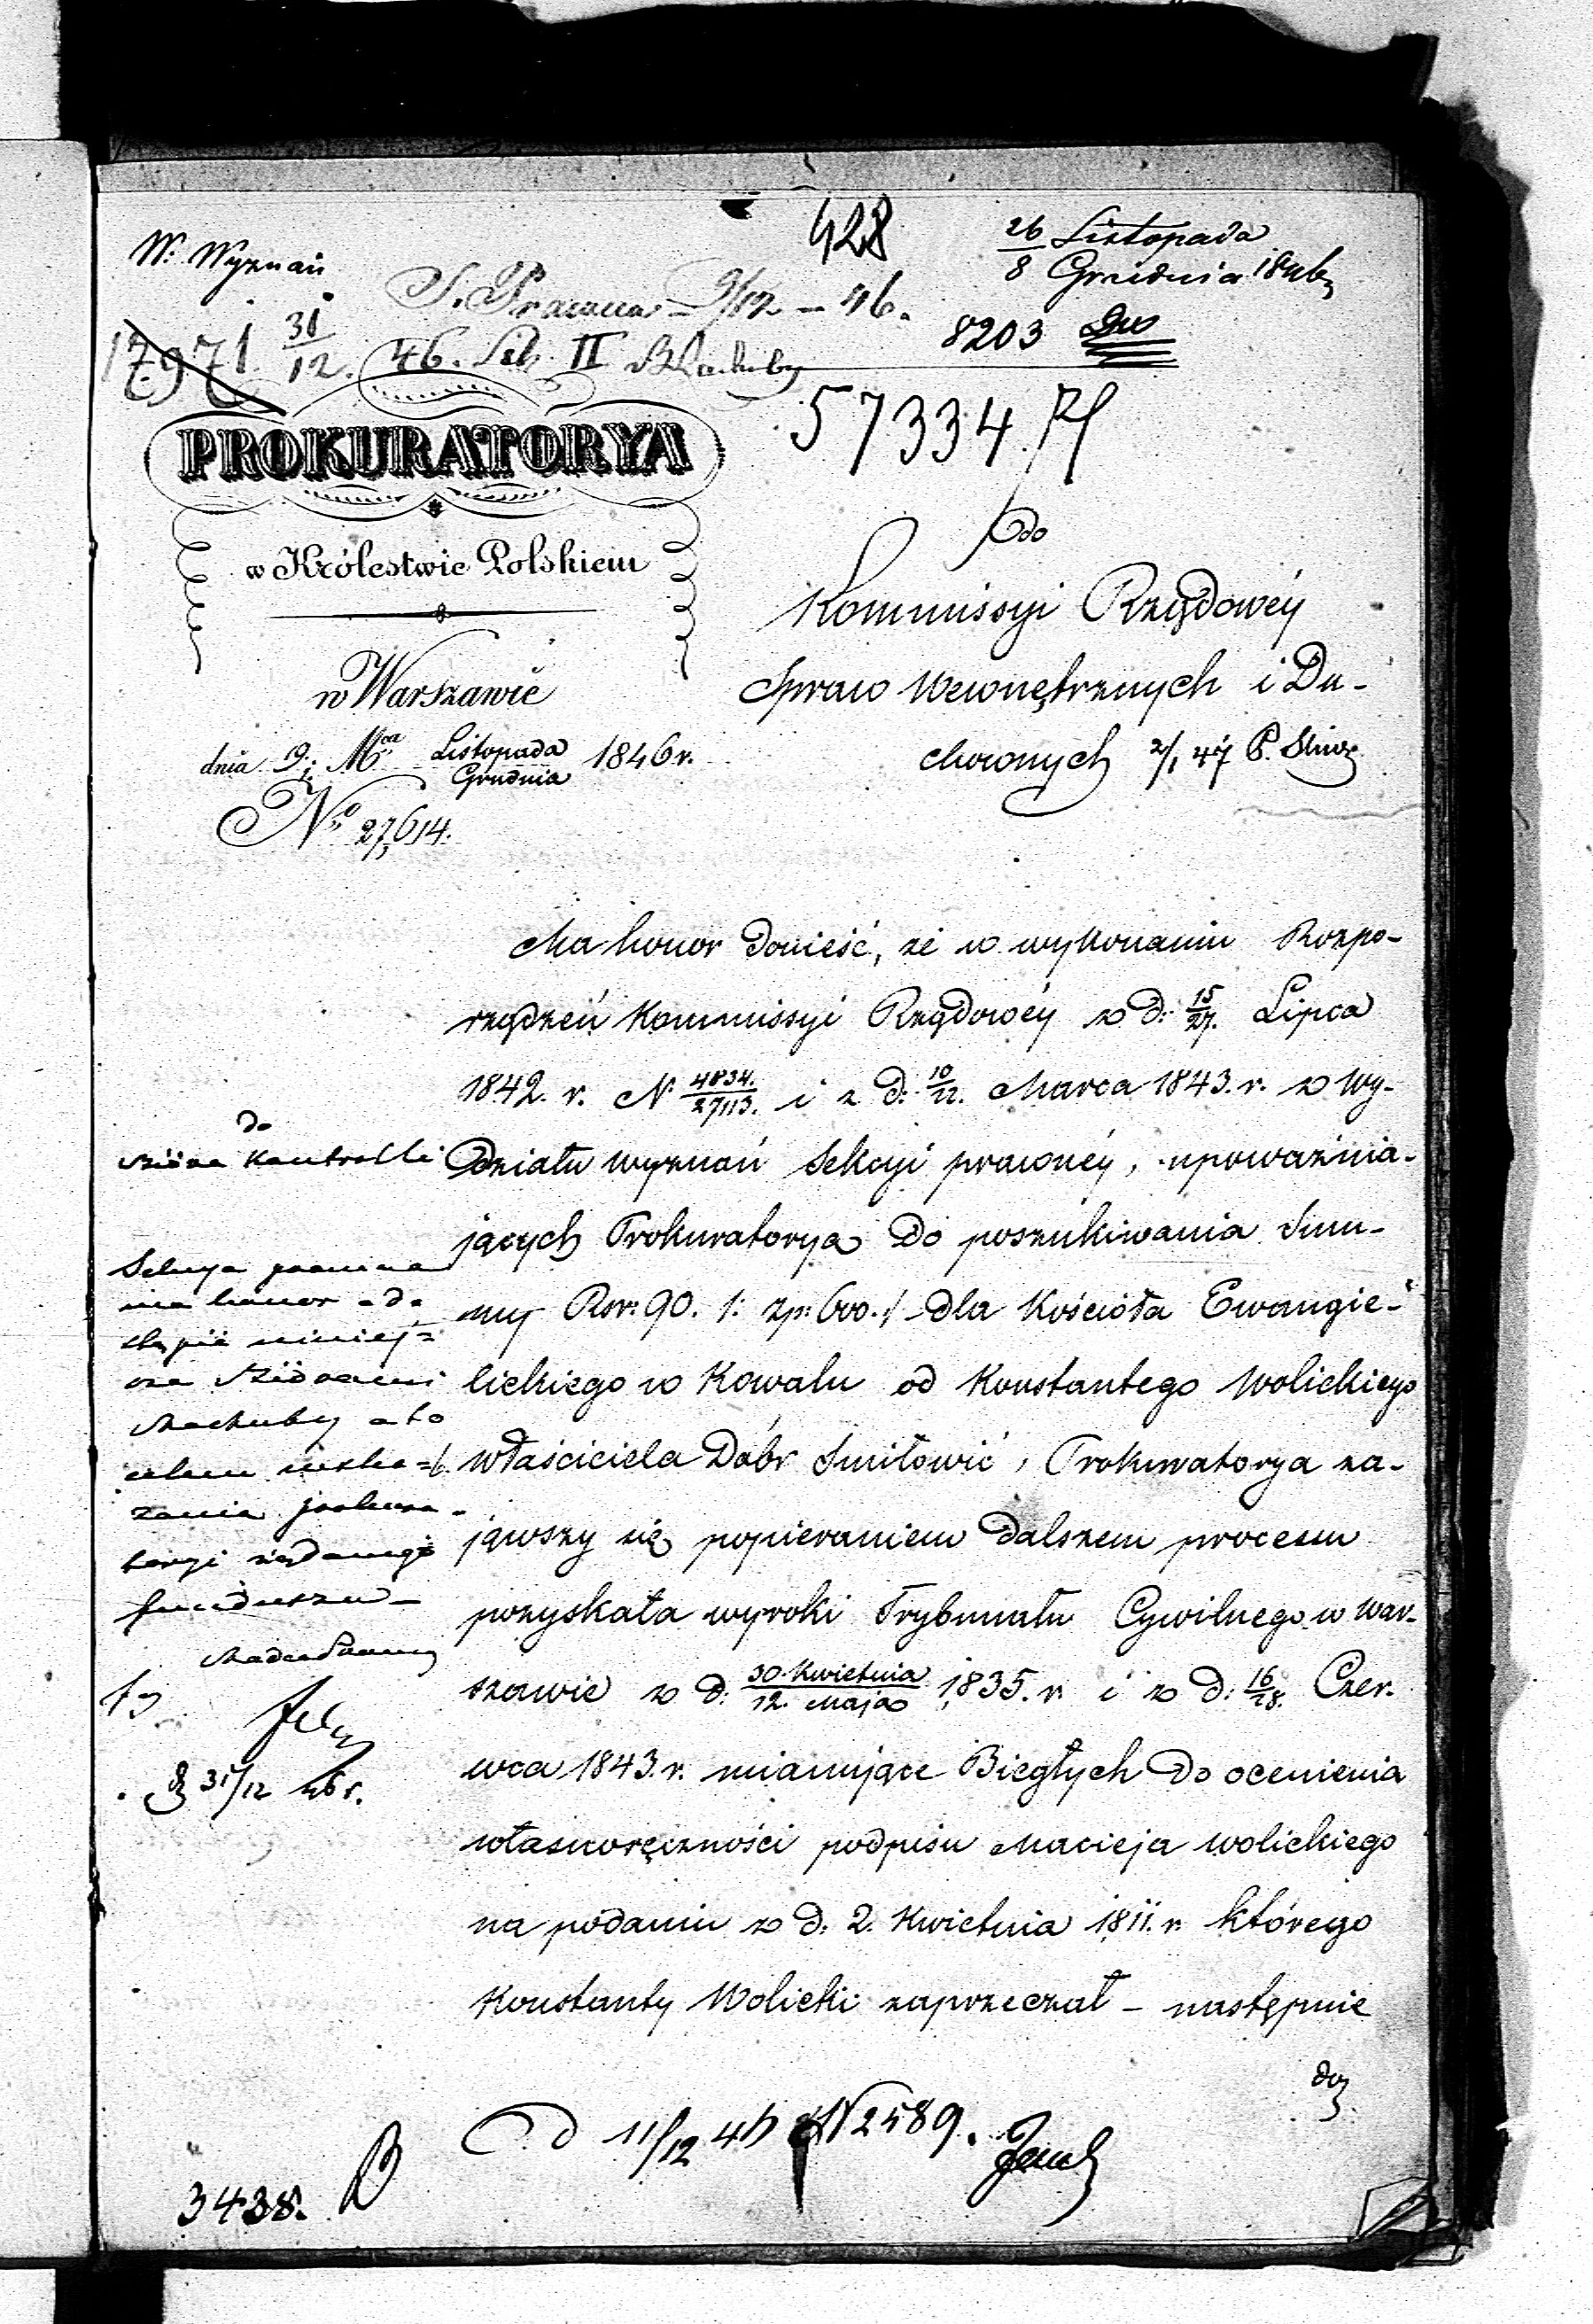 428
26 Listopada
8 Grudnia 1846
W. Wyznań
S. Prawna 9/12 – 46.
8203
17971. 31/12. 46. Sek. II
57334
PROKURATORYA
w Królestwie Polskiem
w Warszawie
dnia 9. Mca Listopada Grudnia 1846 r.
No 27,614.
Do
Kommissyi Rządowéy
Spraw Wewnętrznych i Du-
chownych 2/1 47
Ma honor donieść, że w wykonaniu Rozpo-
rządzeń Kommissyi Rządowéy z d: 15/27. Lipca
1842. r. N. 4834./27113. i z d: 10/22. Marca 1843. r. z Wy-
działu wyznań Sekcyi prawnéy, upoważnia-
jących Prokuratorya do poszukiwania Sum-
my Rsr: 90. /: zp: 600. / dla Kościoła Ewangie-
lickiego w Kowalu od Konstantego Wolickiego
właściciela Dóbr Smiłowic, Prokuratorya za-
jąwszy się popieraniem dalszem procesu
pozyskała wyroki Trybunału Cywilnego w War-
szawie z d: 30. Kwietnia/12. Maja 1835. r. i z d: 16/28. Czer-
wca 1843. r. mianujące Biegłych do ocenienia
własnoręczności podpisu Macieja Wolickiego
na podaniu z d. 2. Kwietnia 1811. r. którego
Konstanty Wolicki zaprzeczał – następnie
do
Kontrolli
Sekcya prawna
ma honor
niniej-
funduszu –
31/12 46 r.
d 11/12 46 N 2589.
3438.